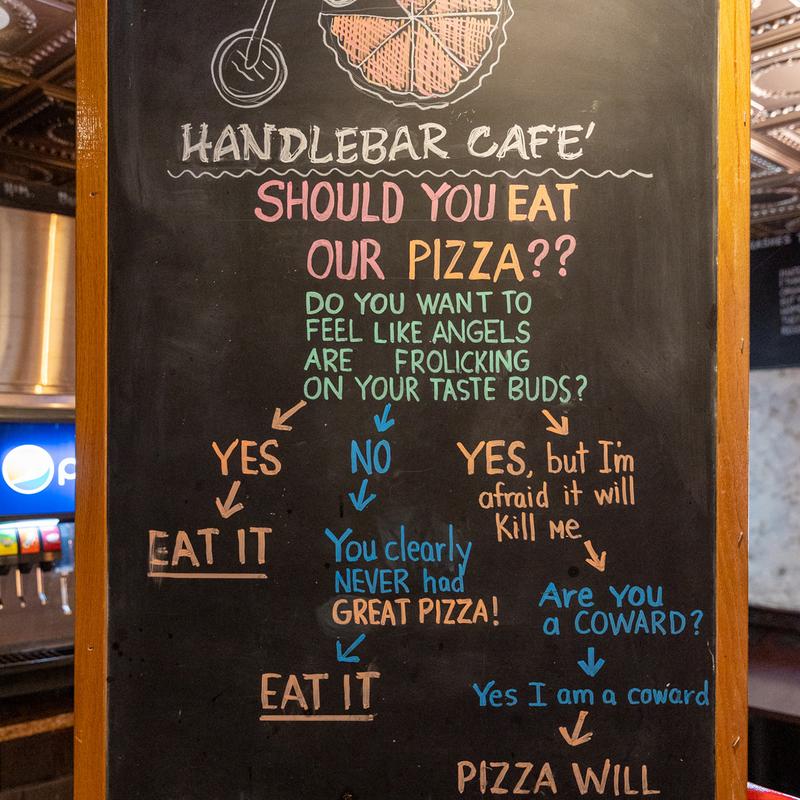 HANDLEBAR CAFE'
SHOULD YOU EAT
OUR PIZZA??
DO YOU WANT TO
FEEL LIKE ANGELS
ARE FROLICKING
ON YOUR TASTE BUDS?
YES
EAT IT
NO
You clearly
NEVER had
GREAT PIZZA!
EAT IT
YES, but I'm
afraid it will
Kill me
Are you
a COWARD?
Yes I am a coward
PIZZA WILL